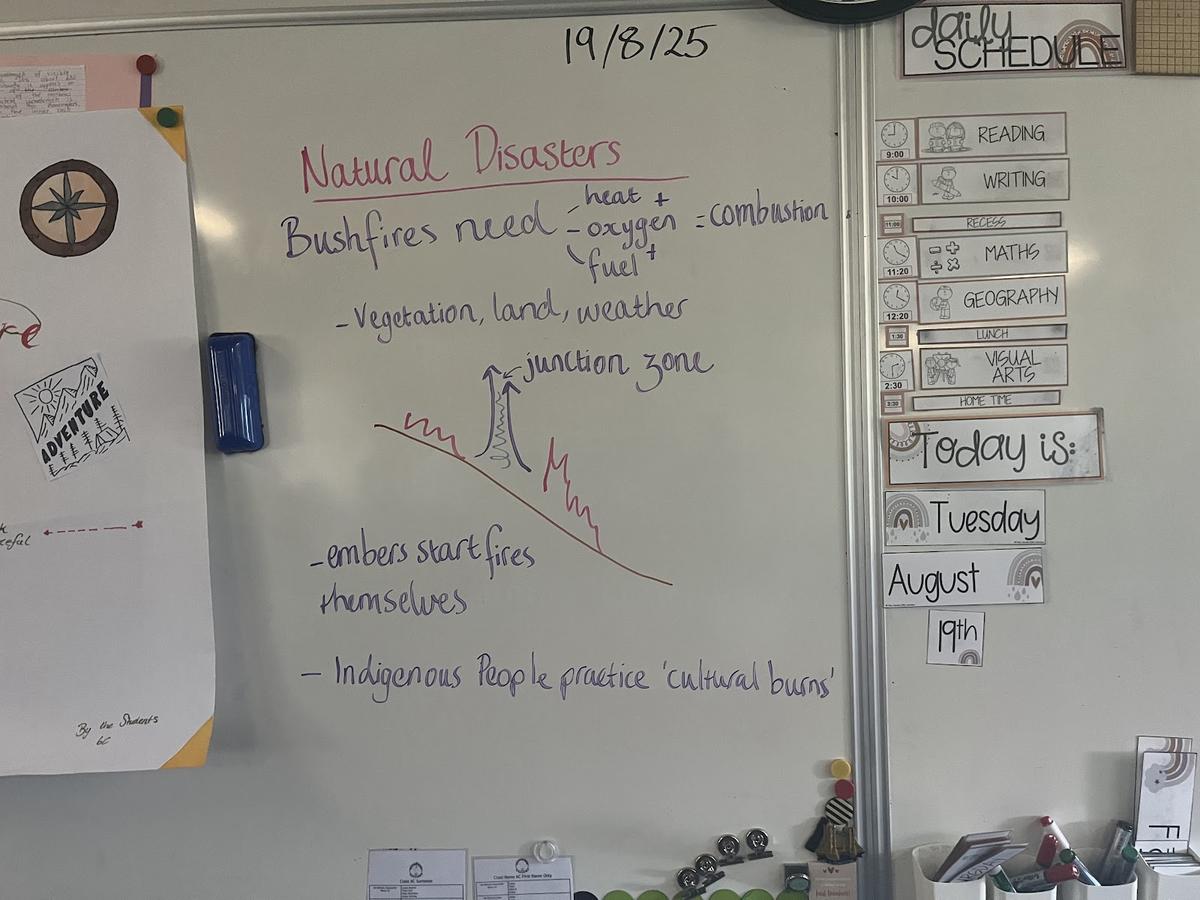 19/8/25
Natural Disasters
Bushfires need - heat + - oxygen + fuel = combustion
- Vegetation, land, weather
junction zone
- embers start fires
themselves
- Indigenous People practice 'cultural burns'
ADVENTURE
By the Students
6C
daily
SCHEDULE
9:00 READING
10:00 WRITING
11:00 RECESS
11:20 MATHS
12:20 GEOGRAPHY
1:30 LUNCH
2:30 VISUAL
ARTS
3:30 HOME TIME
Today is:
Tuesday
August
19th